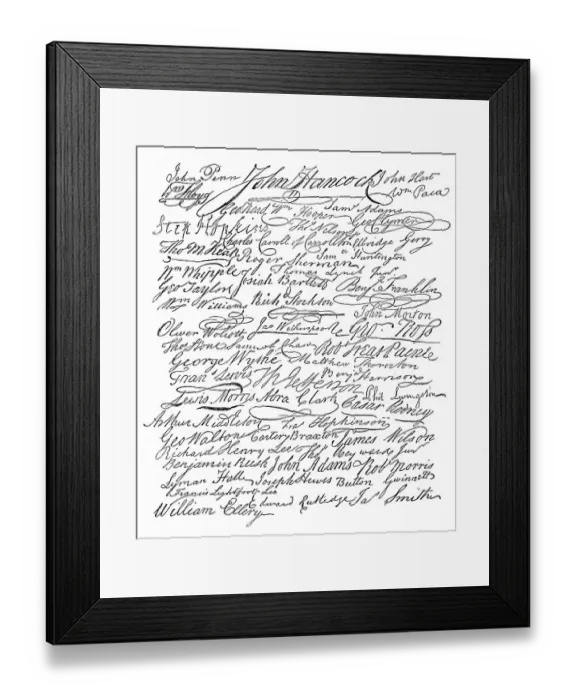 John Penn John Hancock John Hart
Wm Floyd Wm Paca
Geo Read Wm Hooper Saml Adams Geo Clymer
Step Hopkins Thos Nelson
Charles Carroll of Carrollton Elbridge Gerry
Tho M Kean Roger Sherman Saml Huntington
Wm Whipple Thomas Lynch Junr
Geo Taylor Josiah Bartlett Benj Franklin
Wm Williams Richd Stockton John Morton
Oliver Wolcott Jas Witherspoon Geo Ross
Thos Stone Samuel Chase Robt Treat Paine
George Wythe Matthew Thornton
Frans Lewis Th Jefferson Benj Harrison
Lewis Morris Abra Clark Phil Livingston
Caesar Rodney
Arthur Middleton Fras Hopkinson
Geo Walton Carter Braxton James Wilson
Richard Henry Lee Thos Heyward Junr
Benjamin Rush John Adams Robt Morris
Lyman Hall Joseph Hewes Button Gwinnett
Francis Lightfoot Lee
William Ellery Edward Rutledge Jas Smith